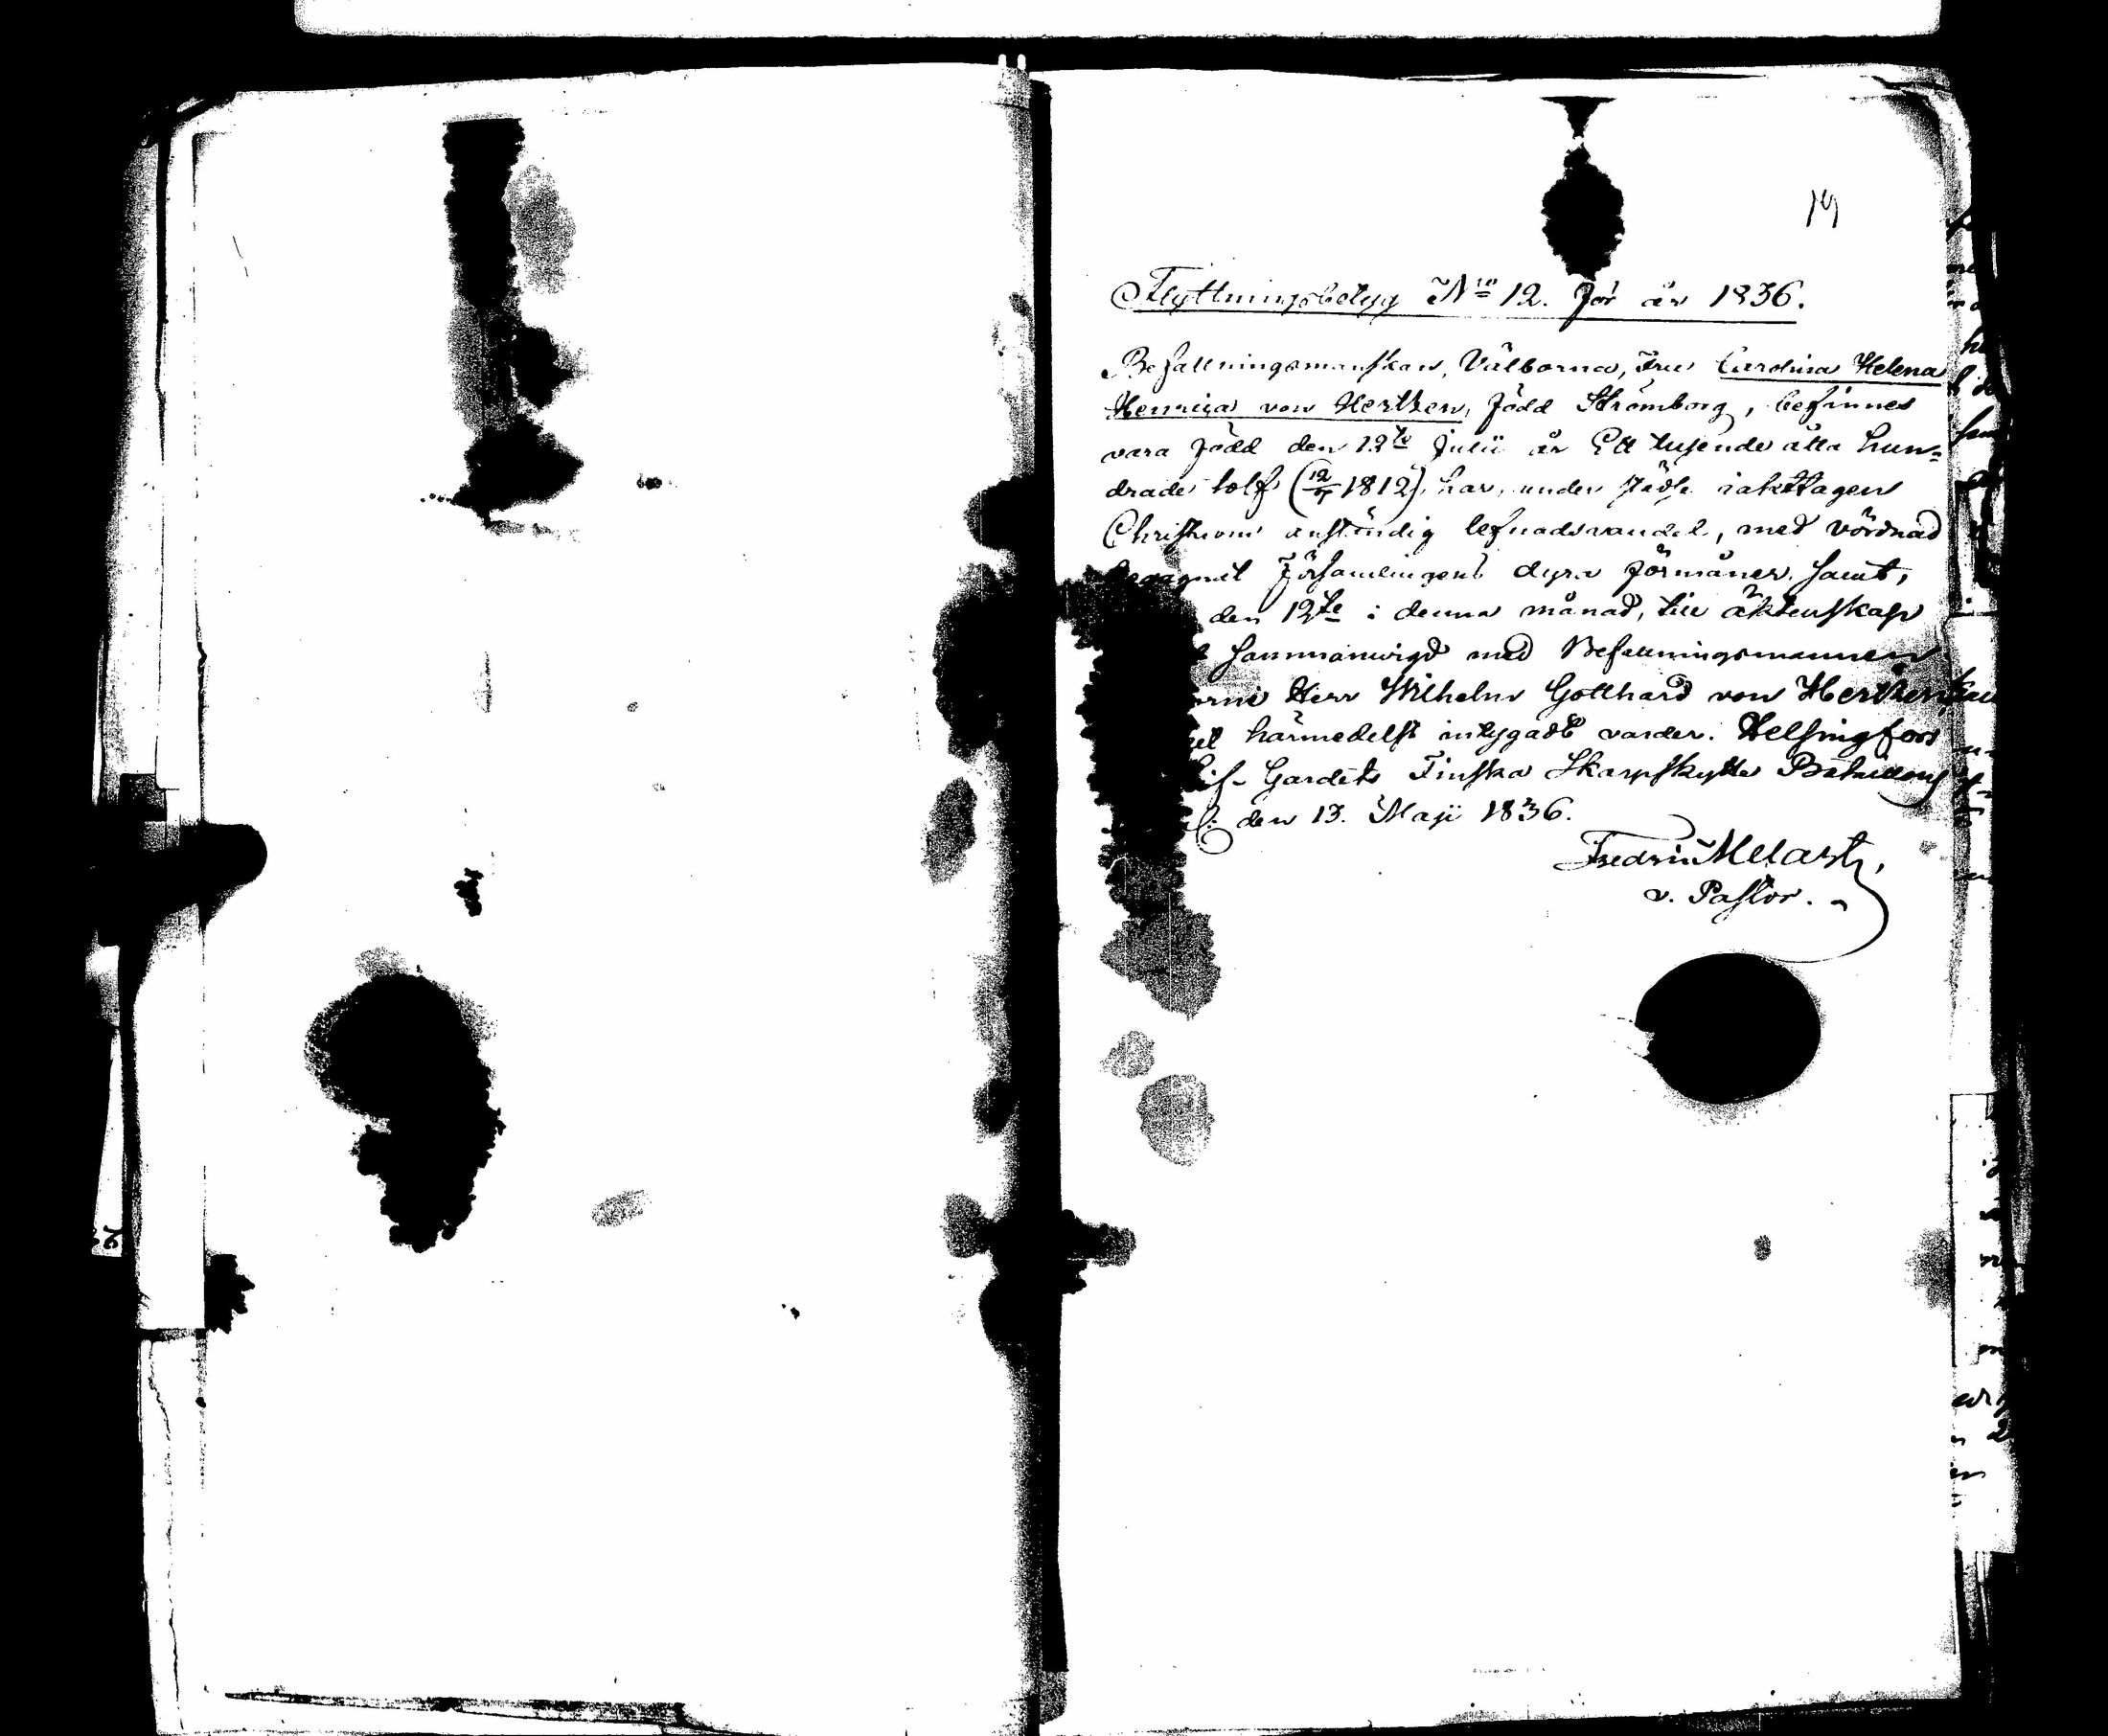 19
Flyttningsbetyg No 12. för år 1836.
Befallningsmanskan, Välborna, Fru Carolina Helena
Henrica von Hertzen, född Strömborg, befinnes
vara född den 12te Julii år Ett tusende åtta hun-
drade tolf (12/7 1812), har, under iakttagen
Christeom anständig lefnadsvandel, med vördnad
begagnat Församlingens dyra förmåner samt,
den 12te i denna månad, till äktenskap
sammanvigd med Befallningsmannen
Herr Wilhelm Gotthard von Hertzen,
härmedelst intygadt varder. Helsingfors
Lif-Gardets Finska Skarpskytte Bataillons
den 13. Maji 1836.
Fredric Melart,
v. Pastor.